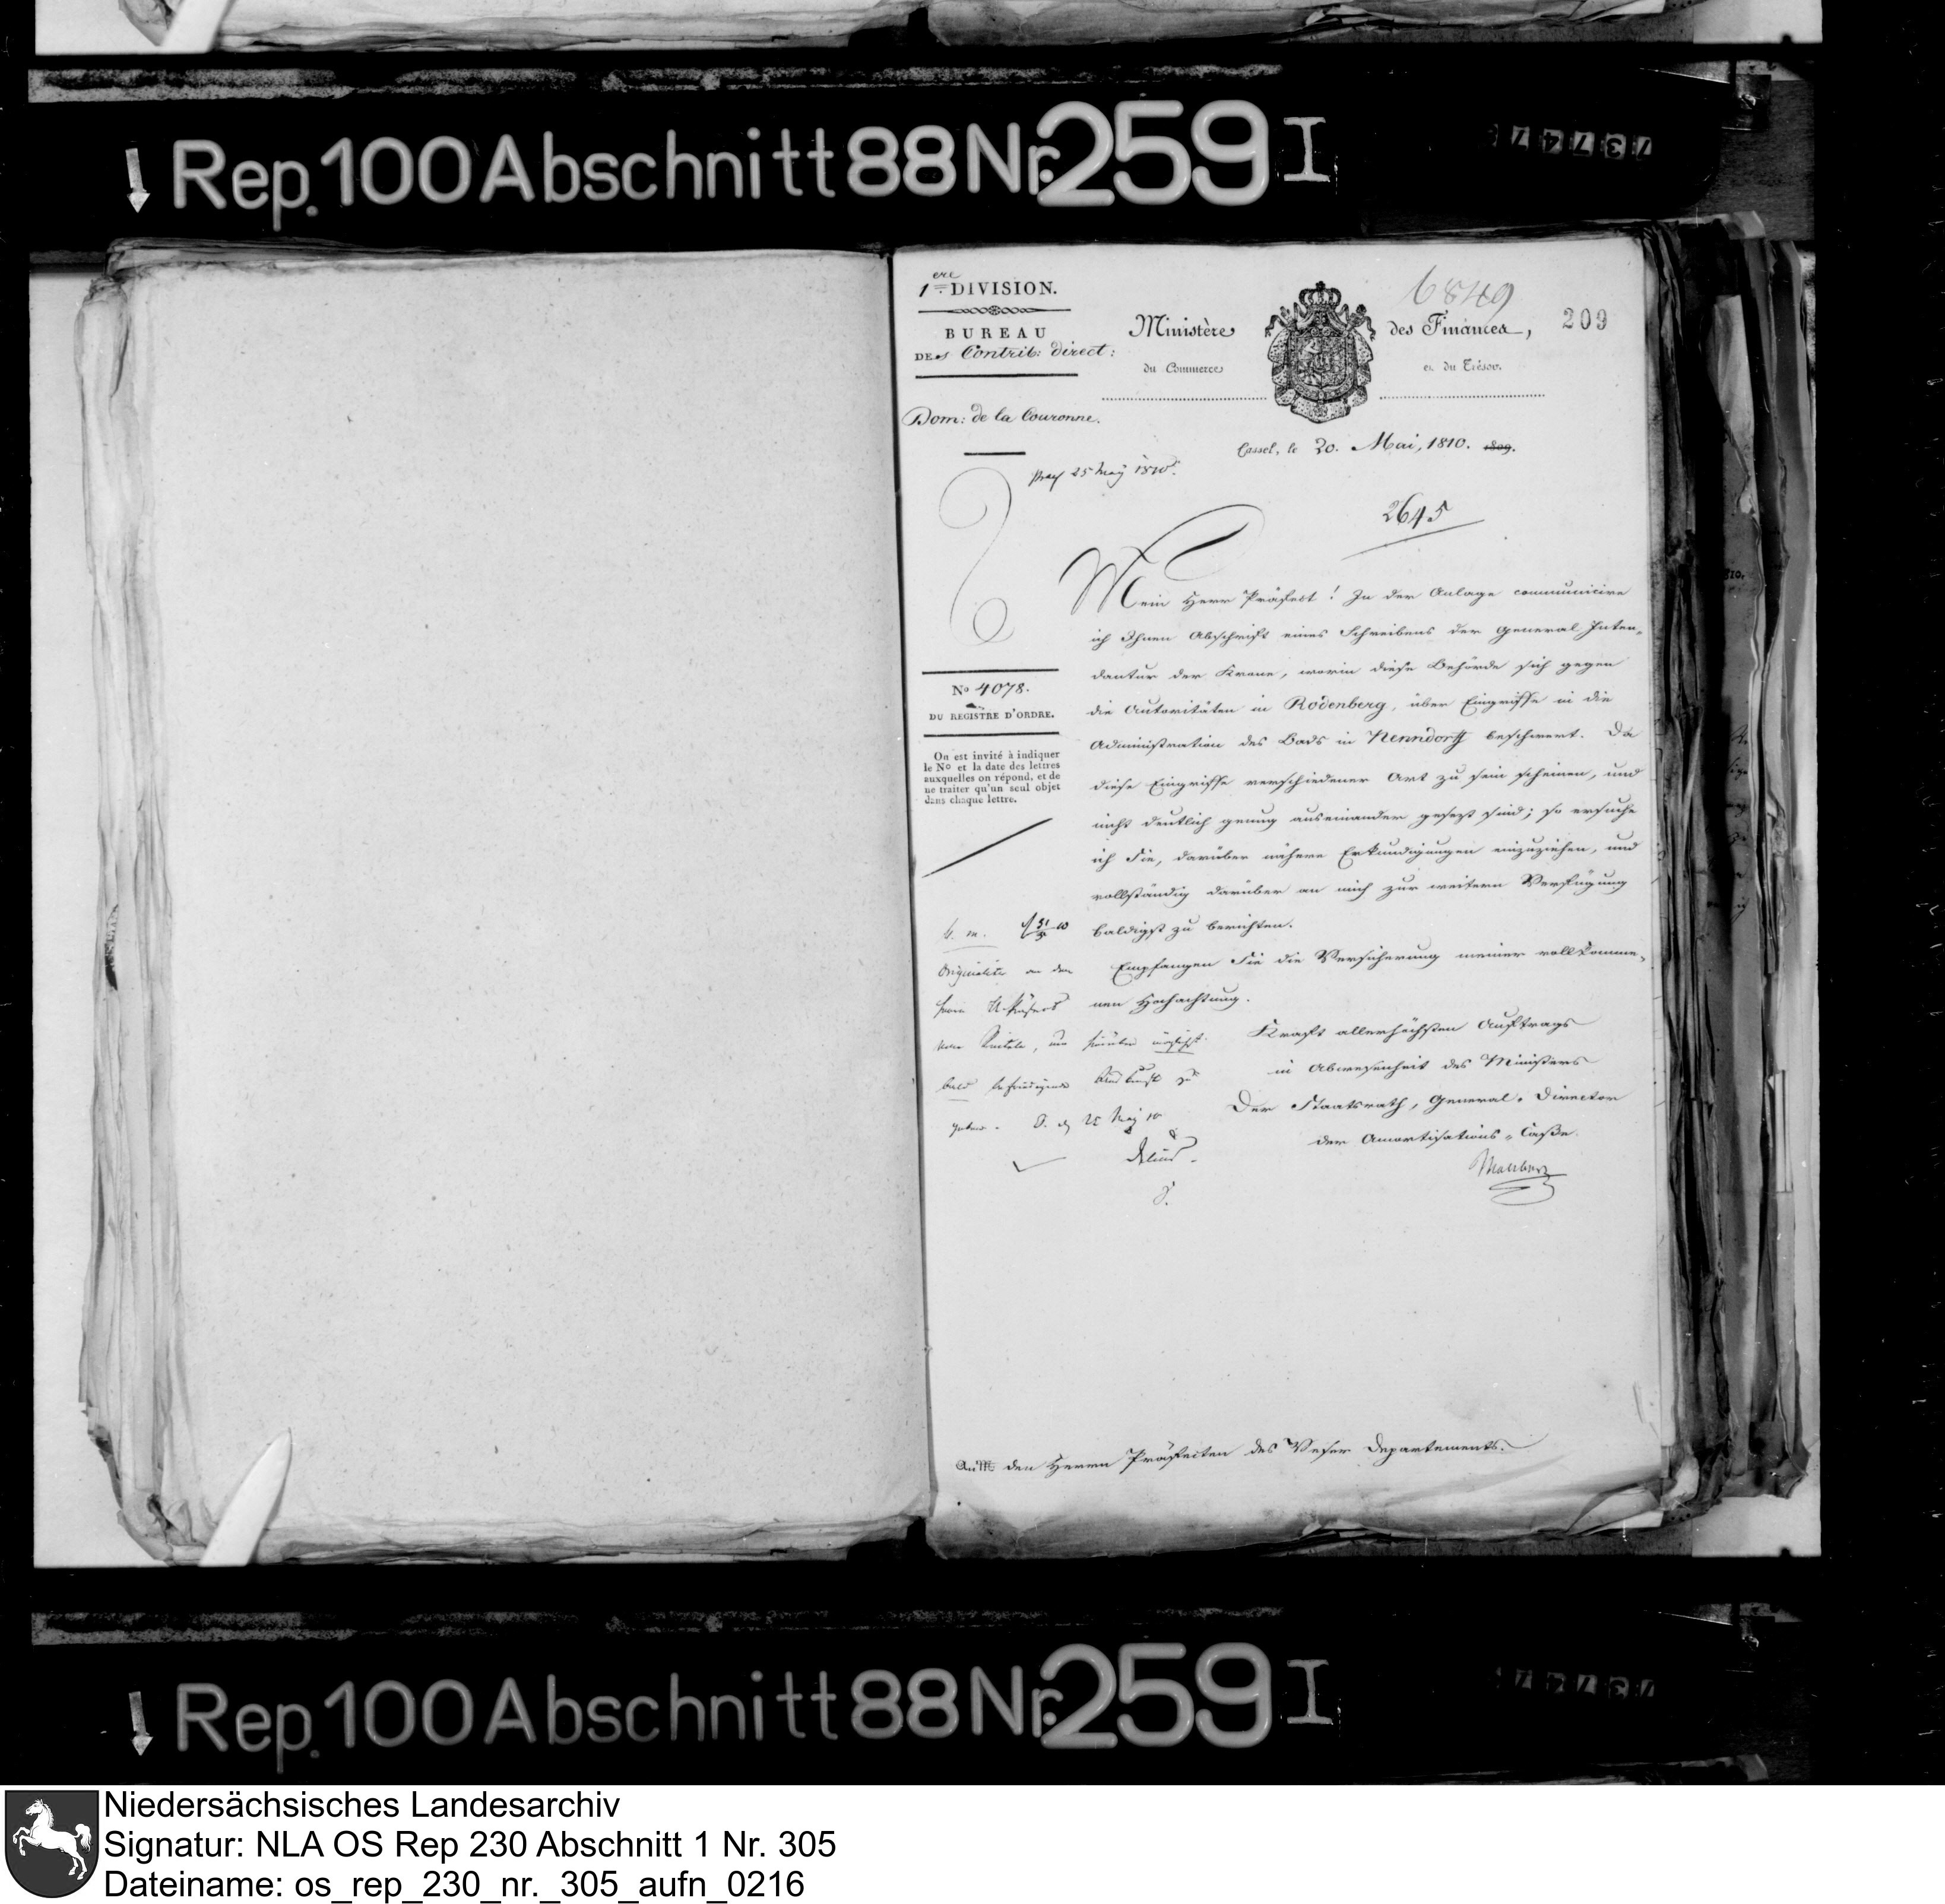 Rep. 100 Abschnitt 88 Nr. 259 I
73747
1ere DIVISION.
BUREAU
DEs Contrib: direct:
Dom: de la Couronne.
6849
209
Ministère des Finances,
du Commerce et du Trésor.
Cassel, le 20. Mai, 1810. 1809.
praes 25 May 1810.
2645
Mein Herr Präfect! In der Anlage communicire
ich Ihnen Abschrift eines Schreibens der General-Inten-
dantur der Krone, worin diese Behörde sich gegen
die Autoritäten in Rodenberg, über Eingriffe in die
Administration des Bads in Nenndorff beschwert. Da
diese Eingriffe verschiedener Art zu sein scheinen, und
nicht deutlich genug auseinander gesezt sind; so ersuche
ich Sie, darüber nähere Erkundigungen einzuziehen, und
vollständig darüber an mich zur weitern Verfügung
baldigst zu berichten.
Empfangen Sie die Versicherung meiner vollkomme-
nen Hochachtung.
Kraft allerhöchsten Auftrags
in Abwesenheit des Ministers
Der Staatsrath, General-Director
der Amortisations-Caße.
Malsburg
No 4078.
DU REGISTRE D'ORDRE.
On est invité à indiquer
le No et la date des lettres
auxquelles on répond, et de
ne traiter qu'un seul objet
dans chaque lettre.
b. m.
Originaliter an den
Herrn U. Präfect
zu Rinteln, um hierüber möglichst
bald befriedigende Auskunft zu
geben. O. d 25 May 10
Delius
An den Herrn Präfecten des Weser Departements.
Rep. 100 Abschnitt 88 Nr. 259 I
73747
Niedersächsisches Landesarchiv
Signatur: NLA OS Rep 230 Abschnitt 1 Nr. 305
Dateiname: os_rep_230_nr._305_aufn_0216